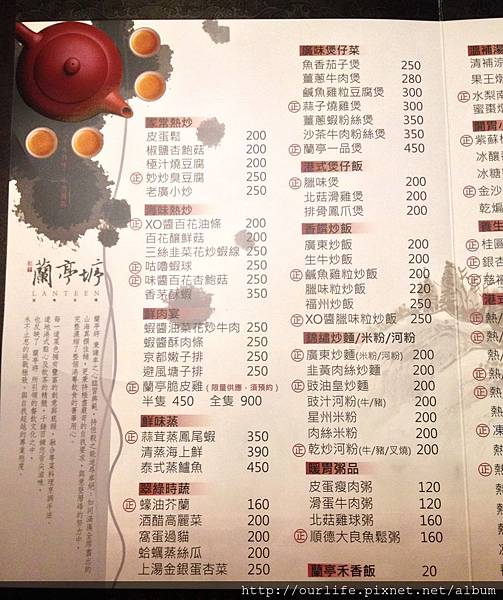 蘭亭坊
LANTEEN
家常熱炒
皮蛋鬆 200
椒鹽杏鮑菇 200
極汁燒豆腐 200
正 妙炒臭豆腐 250
老廣小炒 250
海味熱炒
正 XO醬百花油條 200
百花釀鮮菇 200
三絲韭菜花炒蝦線 250
正 咕嚕蝦球 250
正 味醬百花杏鮑菇 250
香茅酥蝦 350
鮮肉宴
蝦醬油菜花炒牛肉 250
蝦醬酥肉條 250
京都嫩子排 250
避風塘子排 250
正 蘭亭脆皮雞(限量供應，須預約)
半隻 450 全隻 900
鮮味蒸
正 蒜茸蒸鳳尾蝦 350
清蒸海上鮮 390
泰式蒸鱸魚 450
翠綠時蔬
正 蠔油芥蘭 160
酒醋高麗菜 200
窩蛋過貓 200
蛤蠣蒸絲瓜 200
上湯金銀蛋杏菜 250
廣味煲仔菜
魚香茄子煲 250
薑蔥牛肉煲 280
鹹魚雞粒豆腐煲 300
正 蒜子燒雞煲 300
薑蔥蝦粉絲煲 350
沙茶牛肉粉絲煲 350
正 蘭亭一品煲 450
港式煲仔飯
正 臘味煲 200
北菇滑雞煲 200
排骨鳳爪煲 200
香饌炒飯
廣東炒飯 200
生牛炒飯 200
正 鹹魚雞粒炒飯 200
臘味粒炒飯 220
福州炒飯 250
正 XO醬臘味炒飯 250
鑊鏽炒麵/米粉/河粉
正 廣東炒麵(米粉/河粉) 200
韭黃肉絲炒麵 200
正 豉油皇炒麵 200
豉汁河粉(牛/豬) 200
星州米粉 200
肉絲米粉 200
正 乾炒河粉(牛/豬/叉燒) 200
暖胃粥品
皮蛋瘦肉粥 120
滑蛋牛肉粥 120
北菇雞球粥 160
正 順德大良魚鬆粥 160
蘭亭禾香飯 20
溫補湯
清補涼
果王燉
正 水梨南
蜜棗燉
開胃小
正 紫蘇梅
冰釀
冰糖
正 金沙
乾煸
養生
正 桂圓
正 銀杏
慈福
港式
正 熱/
正 熱/
熱/
正 熱/
熱/
正 凍
熱
熱
熱
熱
http://ourlife.pixnet.net/album